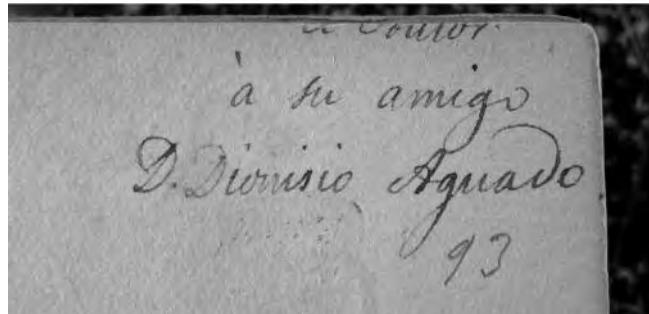 à su amigo
D. Dionisio Aguado
93